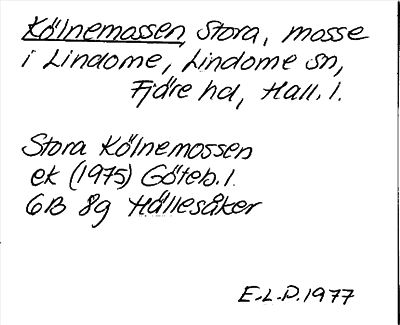 Kölnemossen, Stora, mosse
i Lindome, Lindome sn,
Fjäre hd, Hall. l.
Stora Kölnemossen
ek (1975) Göteb. l.
6B 8g Hällesåker
E.L.P. 1977